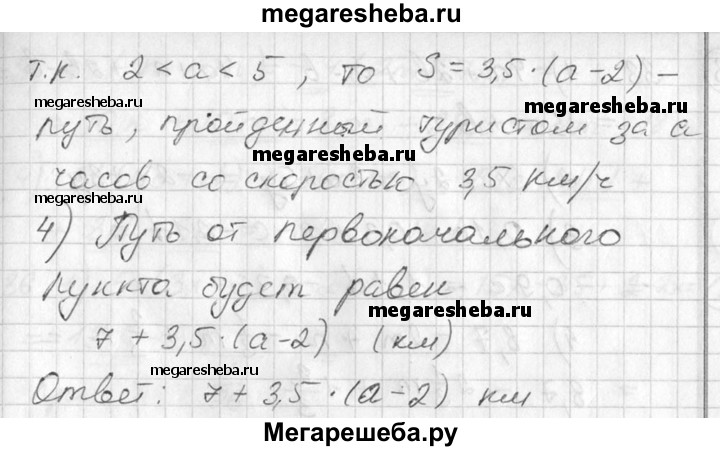 megaresheba.ru
т.к. 2 < a < 5, то S = 3,5 · (a - 2) –
megaresheba.ru megaresheba.ru
путь, пройденный туристом за a
megaresheba.ru
часов со скоростью 3,5 км/ч
megaresheba.ru
4) Путь от первоначального
пункта будет равен
megaresheba.ru
7 + 3,5 · (a - 2) (км)
megaresheba.ru
Ответ: 7 + 3,5 · (a - 2) км
Мегарешеба.ру